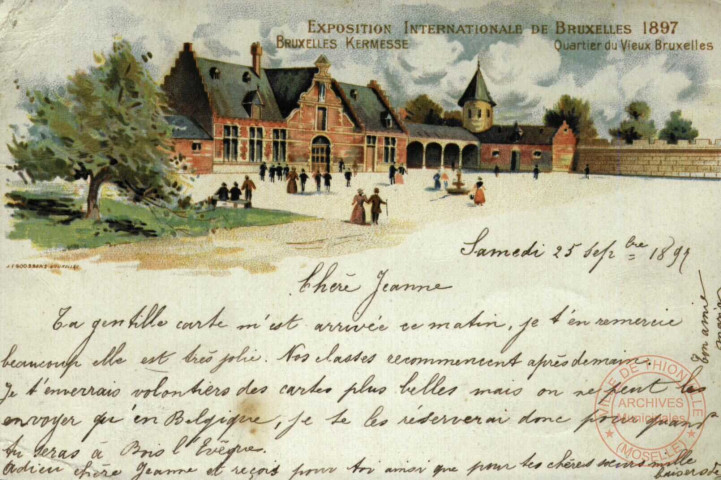 EXPOSITION INTERNATIONALE DE BRUXELLES 1897
BRUXELLES KERMESSE
Quartier du Vieux Bruxelles
Samedi 25 Sepbre 1897
Chère Jeanne
Ta gentille carte m'est arrivée ce matin, je t'en remercie
beaucoup elle est très jolie. Nos classes recommencent après demain.
Je t'enverrais volontiers des cartes plus belles mais on ne peut les
envoyer qu'en Belgique, je te les réserverai donc pour quand
tu seras à Bois l'Evêque.
Adieu chère Jeanne et reçois pour toi ainsi que pour tes chères sœurs mille
baisers de
ton amie
VILLE DE THIONVILLE
ARCHIVES
Municipales
(MOSELLE)